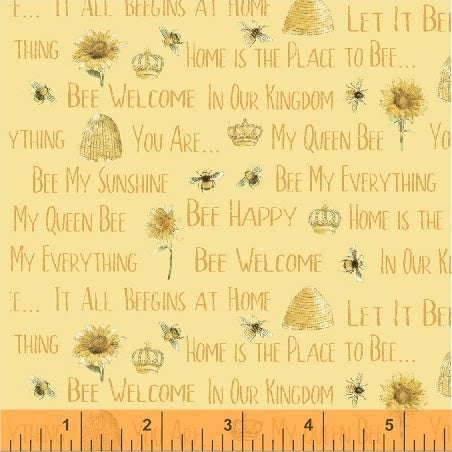 E... IT ALL BEEGINS AT HOME
LET IT BEE
THING HOME IS THE PLACE TO BEE...
BEE WELCOME IN OUR KINGDOM
YTHING YOU ARE... MY QUEEN BEE YO
BEE MY SUNSHINE BEE MY EVERYTHING
MY QUEEN BEE BEE HAPPY HOME IS THE
MY EVERYTHING BEE WELCOME IN OUR K
E... IT ALL BEEGINS AT HOME LET IT BEE
THING HOME IS THE PLACE TO BEE...
BEE WELCOME IN OUR KINGDOM
YTHING YOU ARE... MY QUEEN BEE YO
1 2 3 4 5